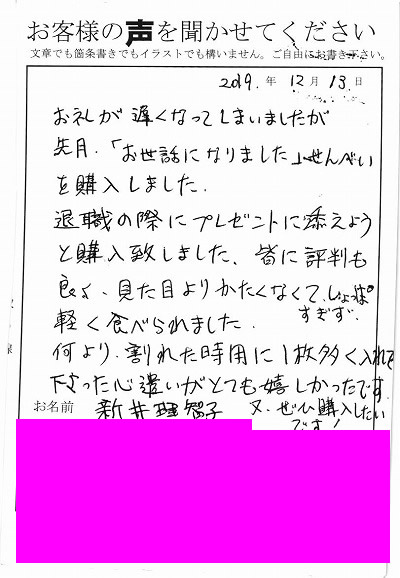 お客様の声を聞かせてください
文章でも箇条書きでもイラストでも構いません。ご自由にお書き下さい。
2019.年 12月 13.日
お礼が遅くなってしまいましたが
先月.「お世話になりました」せんべい
を購入しました.
退職の際にプレゼントに添えよう
と購入致しました. 皆に評判も
良く、見た目よりかたくなくて、しょっぱ
すぎず.
軽く食べられました.
何より.割れた時用に1枚多く入れて
下さった心遣いがとても嬉しかったです
お名前 新井理智子 又、ぜひ購入したい
です!